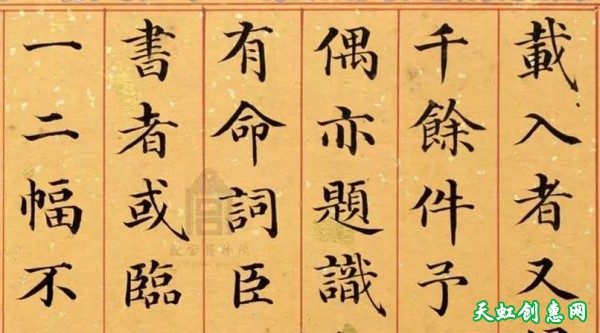 載入者又
千餘件予
偶亦題識
有命詞臣
書者或臨
一二幅不
故宫博物院
天虹创惠网